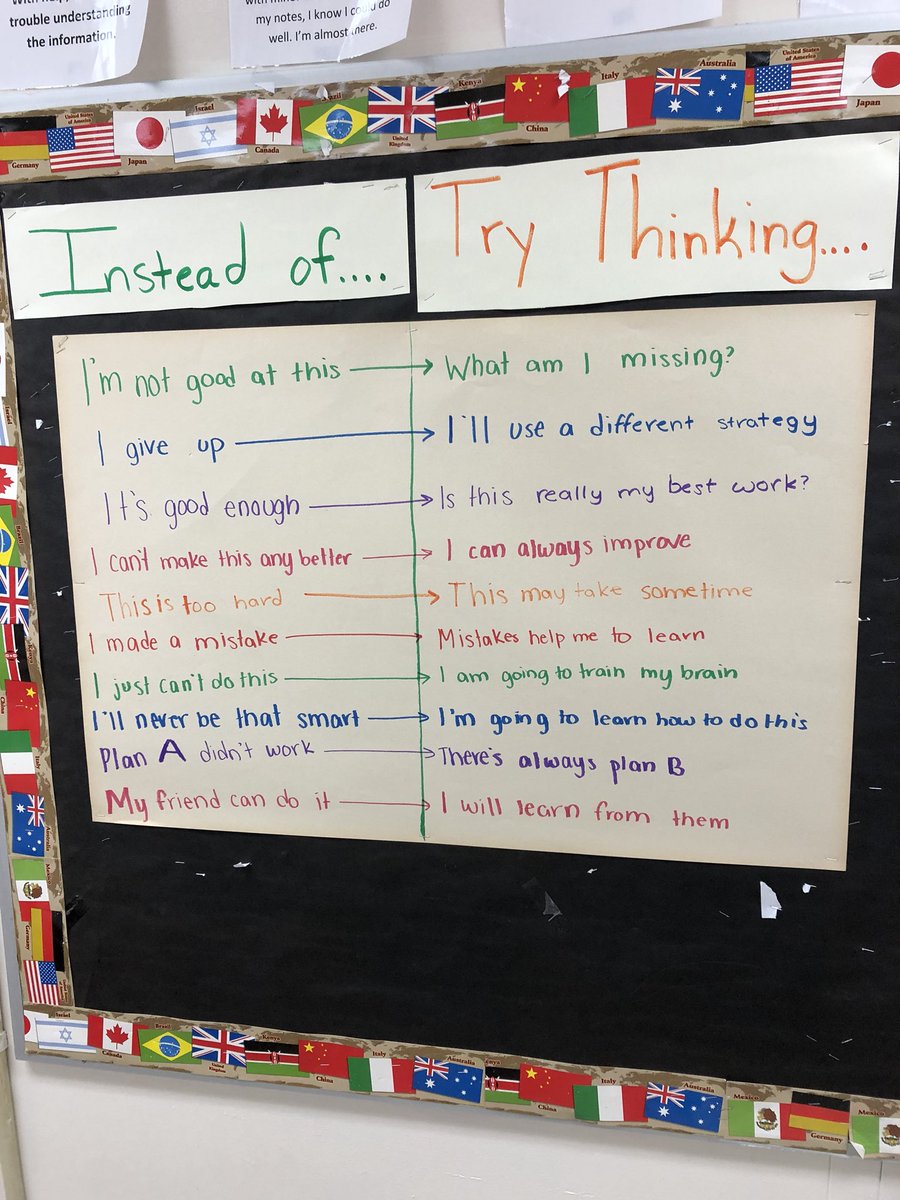 trouble understanding
the information.
my notes, I know I could do
well. I'm almost there.
Germany
United States
of America
Japan
Israel
Canada
Brazil
United
Kingdom
Kenya
China
Italy
Australia
United States
of America
Japan
Instead of....
Try Thinking....
I'm not good at this → What am I missing?
I give up → I'll use a different strategy
It's good enough → Is this really my best work?
I can't make this any better → I can always improve
This is too hard → This may take sometime
I made a mistake → Mistakes help me to learn
I just can't do this → I am going to train my brain
I'll never be that smart → I'm going to learn how to do this
Plan A didn't work → There's always plan B
My friend can do it → I will learn from them
Israel
Kenya
China
Italy
Australia
Mexico
Germany
Israel
Canada
Brazil
United
Kingdom
Kenya
China
Italy
Australia
China
Italy
Australia
Mexico
Germany
Mexico